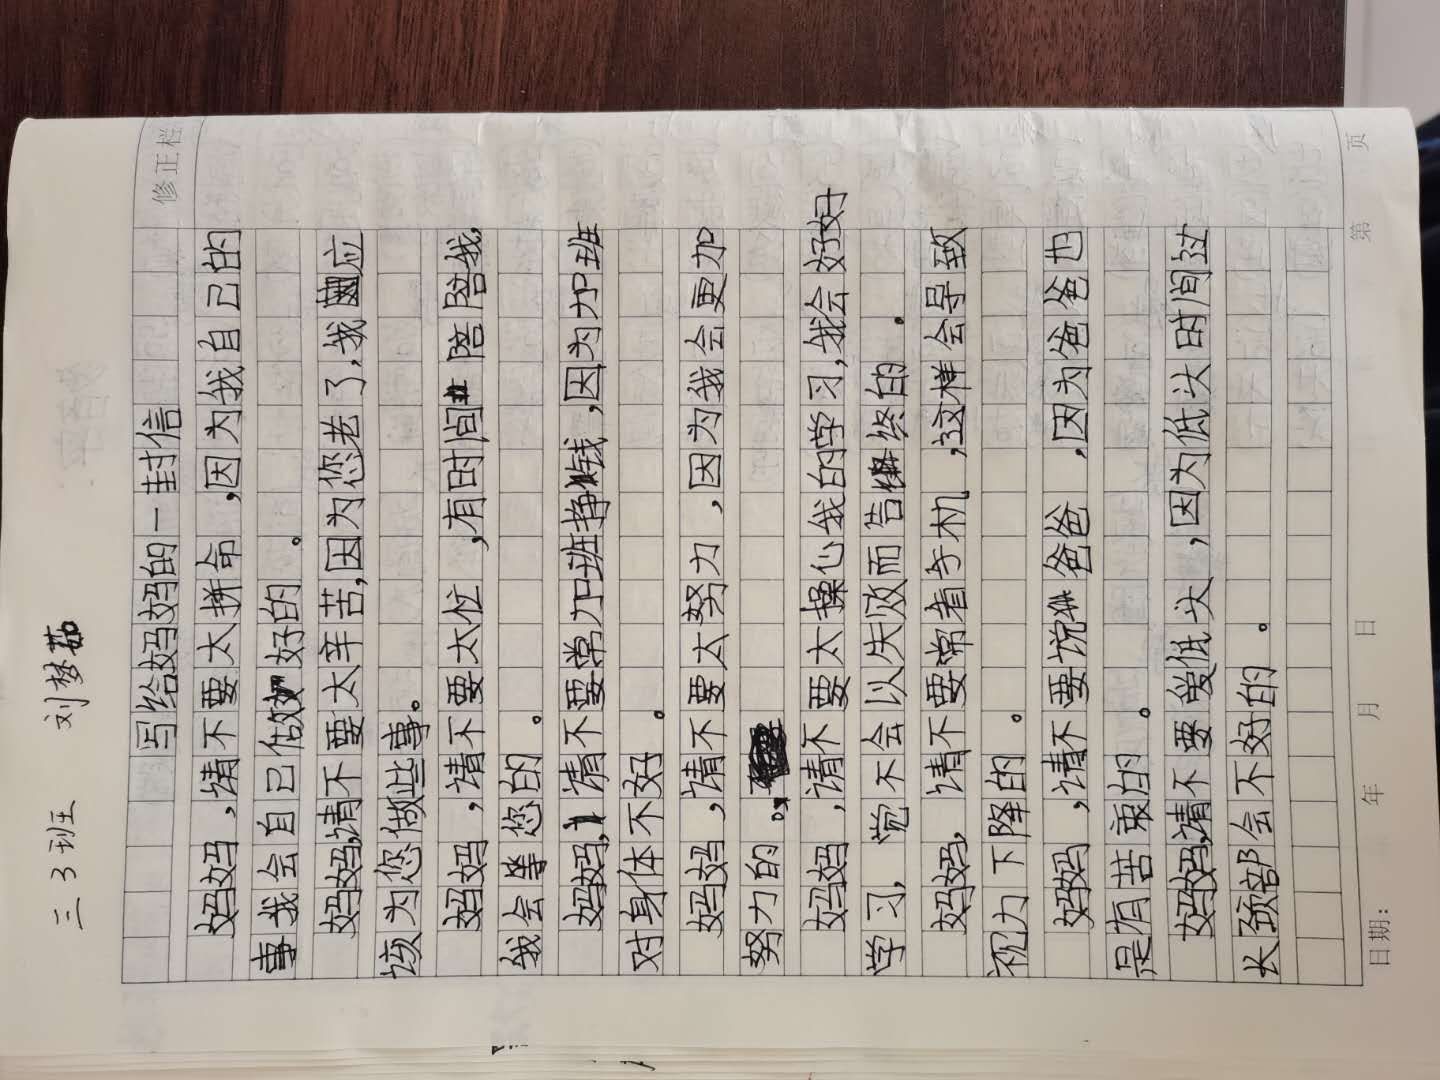 三3班 刘梦茹
修正栏
写给妈妈的一封信
妈妈,请不要太拼命,因为我自己的
事我会自己做好的。
妈妈,请不要太辛苦,因为您老了,我应
该为您做些事。
妈妈,请不要太位,有时间陪陪我,
我会等您的。
妈妈,请不要常加班挣钱,因为加班
对身体不好。
妈妈,请不要太努力,因为我会更加
努力的。
妈妈,请不要太操心我的学习,我会好好
学习,觉不会以失败而告终的。
妈妈,请不要常看手机,这样会导致
视力下降的。
妈妈,请不要说爸爸,因为爸爸也
是有苦衷的。
妈妈,请不要爱低头,因为低头时间过
长颈部会不好的。
日期: 年 月 日 第 页